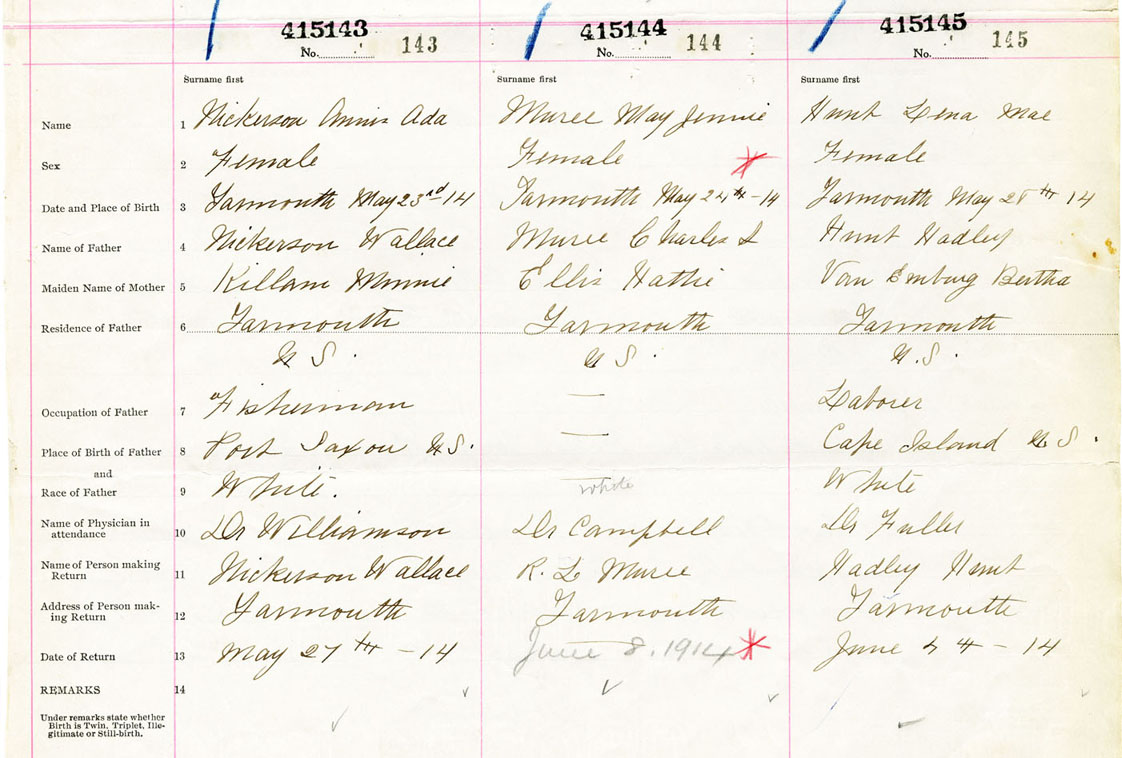 415143 415144 415145
No. 143 No. 144 No. 145
Surname first Surname first Surname first
Name 1 Nickerson Annis Ada Muree May Jennie Hunt Lena Mae
Sex 2 Female Female Female
Date and Place of Birth 3 Yarmouth May 23rd 14 Yarmouth May 24th -14 Yarmouth May 28th 14
Name of Father 4 Nickerson Wallace Muree Charles L Hunt Hadley
Maiden Name of Mother 5 Killam Minnie Ellis Hattie Van Emburg Bertha
Residence of Father 6 Yarmouth Yarmouth Yarmouth
N S. N S. N.S.
Occupation of Father 7 Fisherman — Laborer
Place of Birth of Father 8 Port Saxon N S. — Cape Island N S.
and
Race of Father 9 White. White White
Name of Physician in
attendance 10 Dr Williamson Dr Campbell Dr Fuller
Name of Person making
Return 11 Nickerson Wallace R. L Muree Hadley Hunt
Address of Person mak-
ing Return 12 Yarmouth Yarmouth Yarmouth
Date of Return 13 May 27th -14 June 8. 1914 June 4 - 14
REMARKS 14
Under remarks state whether
Birth is Twin, Triplet, Ille-
gitimate or Still-birth.